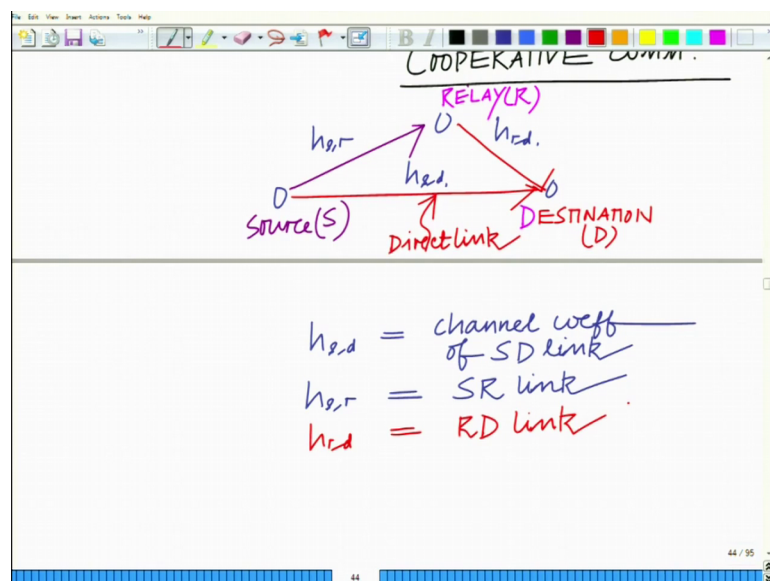 File Edit View Insert Actions Tools Help
B I
COOPERATIVE COMM.
RELAY(R)
hs,r
hr,d.
hs,d.
Source(S)
Direct link
DESTINATION
(D)
hs,d = channel coeff
of SD link
hs,r = SR link
hr,d = RD link
44 / 95
44